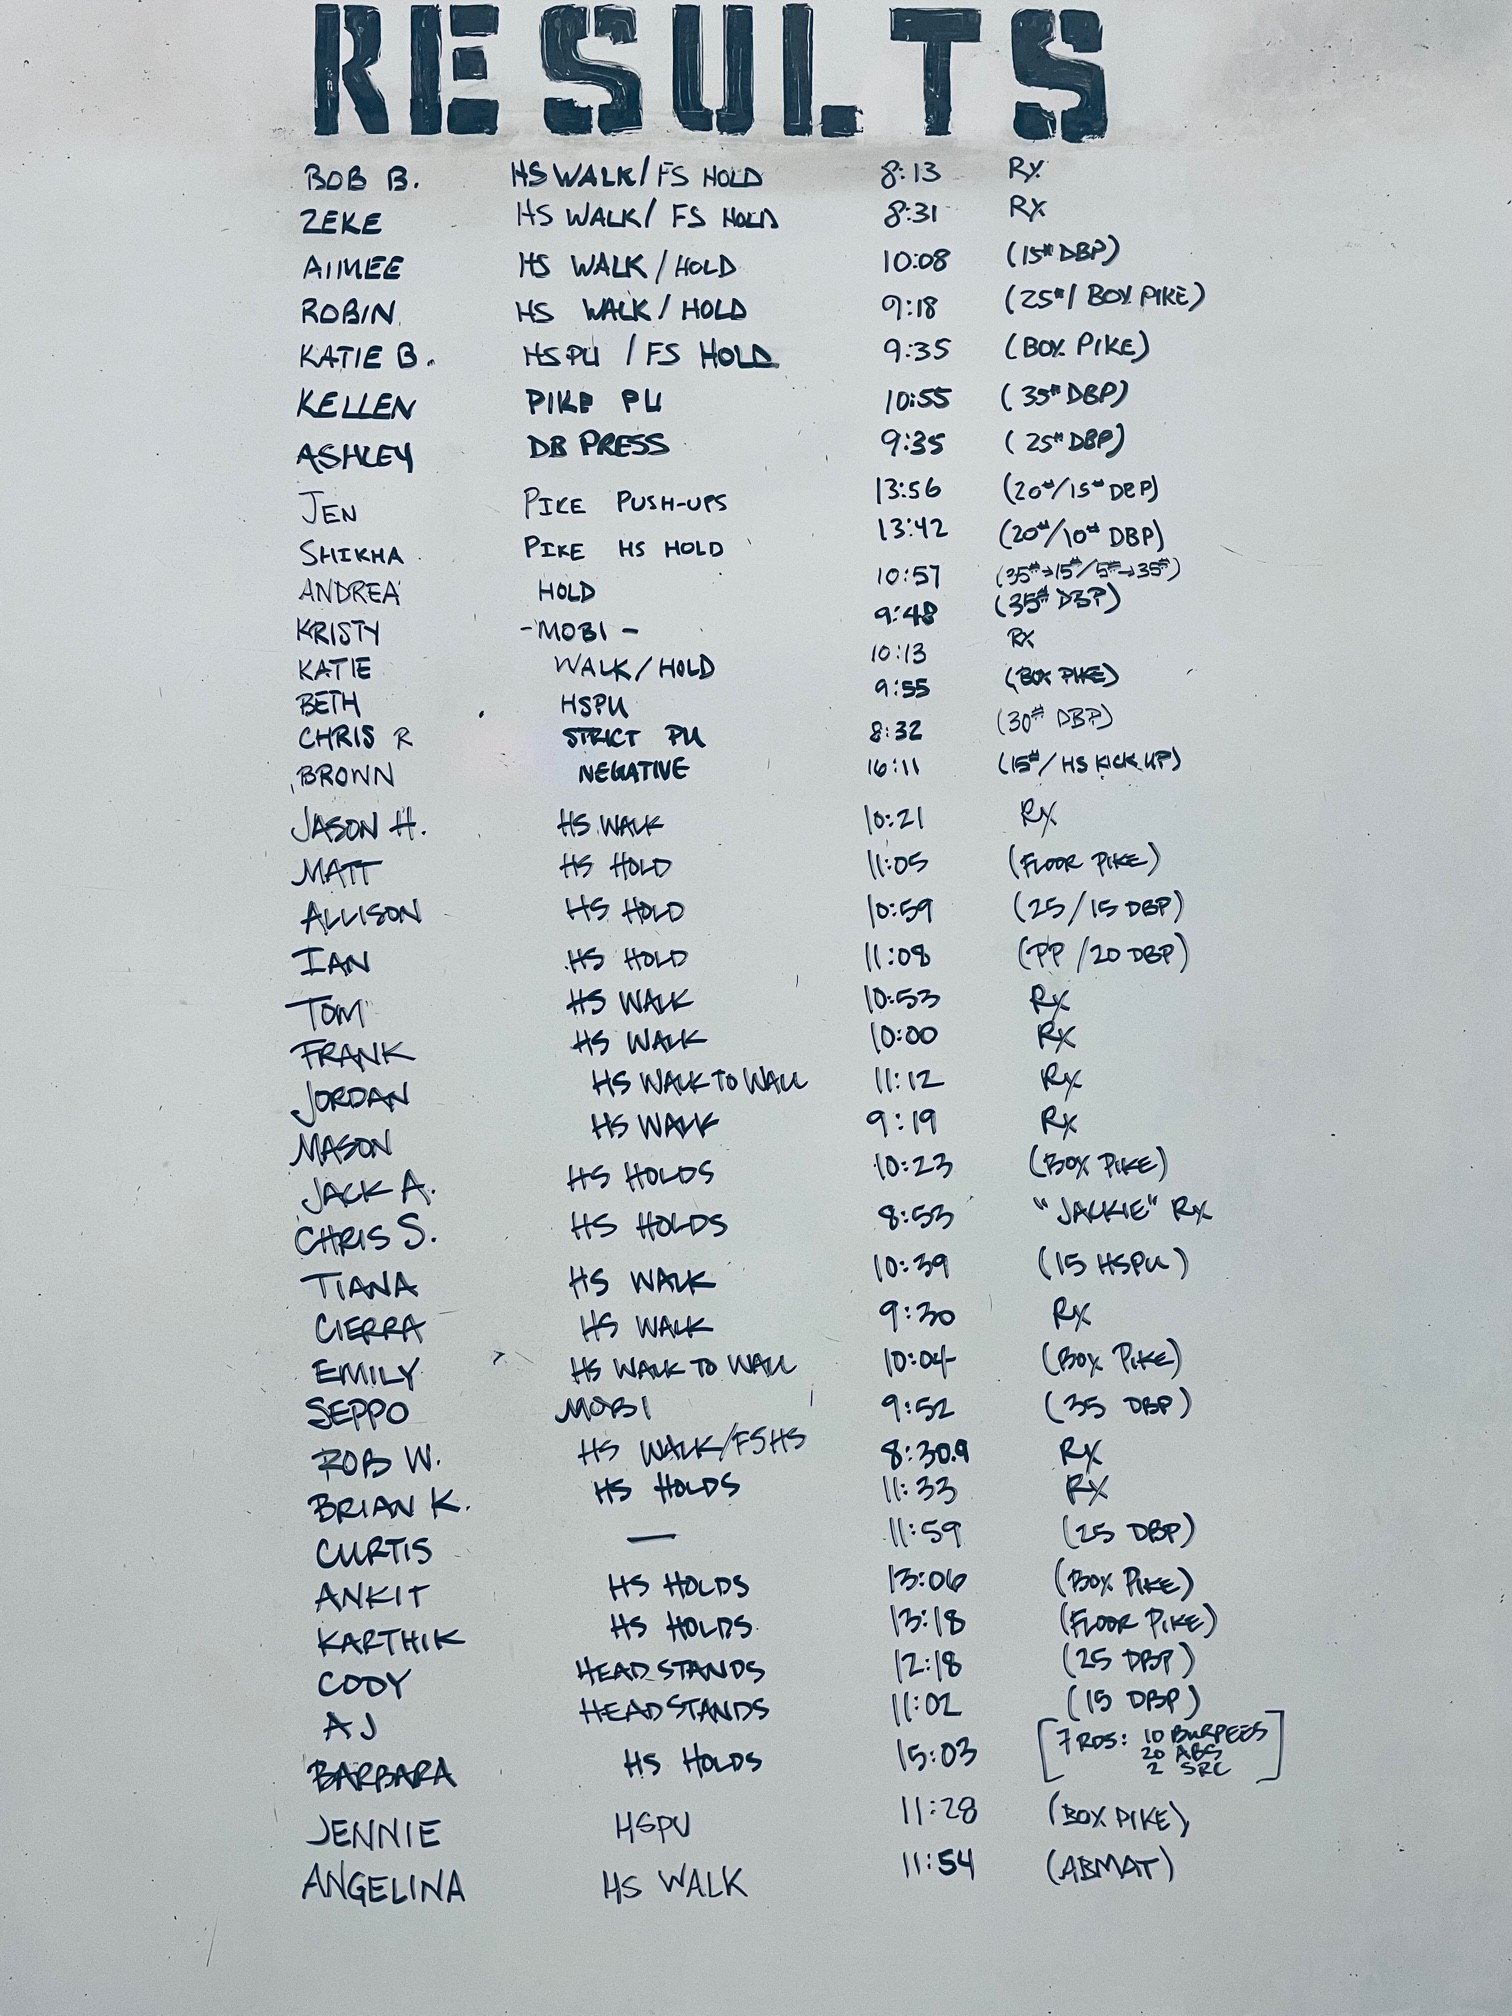 RESULTS
BOB B. HS WALK/FS HOLD 8:13 Rx
ZEKE HS WALK/ FS HOLD 8:31 Rx
AIMEE HS WALK/HOLD 10:08 (15# DBP)
ROBIN HS WALK/HOLD 9:18 (25#/ BOX PIKE)
KATIE B. HSPU /FS HOLD 9:35 (BOX PIKE)
KELLEN PIKE PU 10:55 (35# DBP)
ASHLEY DB PRESS 9:35 (25# DBP)
JEN PIKE PUSH-UPS 13:56 (20#/15# DBP)
SHIKHA PIKE HS HOLD 13:42 (20#/10# DBP)
ANDREA HOLD 10:57 (35#→15#/5#→35#)
KRISTY -MOBI- 9:48 (35# DBP)
KATIE WALK/HOLD 10:13 Rx
BETH HSPU 9:55 (BOX PIKE)
CHRIS R STRICT PU 8:32 (30# DBP)
BROWN NEGATIVE 16:11 (15#/HS KICK UP)
JASON H. HS WALK 10:21 Rx
MATT HS HOLD 11:05 (FLOOR PIKE)
ALLISON HS HOLD 10:59 (25/15 DBP)
IAN HS HOLD 11:08 (PP/20 DBP)
TOM HS WALK 10:53 Rx
FRANK HS WALK 10:00 Rx
JORDAN HS WALK TO WALL 11:12 Rx
MASON HS WALK 9:19 Rx
JACK A. HS HOLDS 10:23 (BOX PIKE)
CHRIS S. HS HOLDS 8:53 "JACKIE" Rx
TIANA HS WALK 10:39 (15 HSPU)
CIERRA HS WALK 9:30 Rx
EMILY HS WALK TO WALL 10:04 (BOX PIKE)
SEPPO MOBI 9:52 (35 DBP)
ROB W. HS WALK/FSHS 8:30.9 Rx
BRIAN K. HS HOLDS 11:33 Rx
CURTIS — 11:59 (25 DBP)
ANKIT HS HOLDS 13:06 (BOX PIKE)
KARTHIK HS HOLDS 13:18 (FLOOR PIKE)
CODY HEADSTANDS 12:18 (25 DBP)
AJ HEADSTANDS 11:02 (15 DBP)
BARBARA HS HOLDS 15:03 [7 RDS: 10 BURPEES
20 ABS
2 SRC]
JENNIE HSPU 11:28 (BOX PIKE)
ANGELINA HS WALK 11:54 (ABMAT)